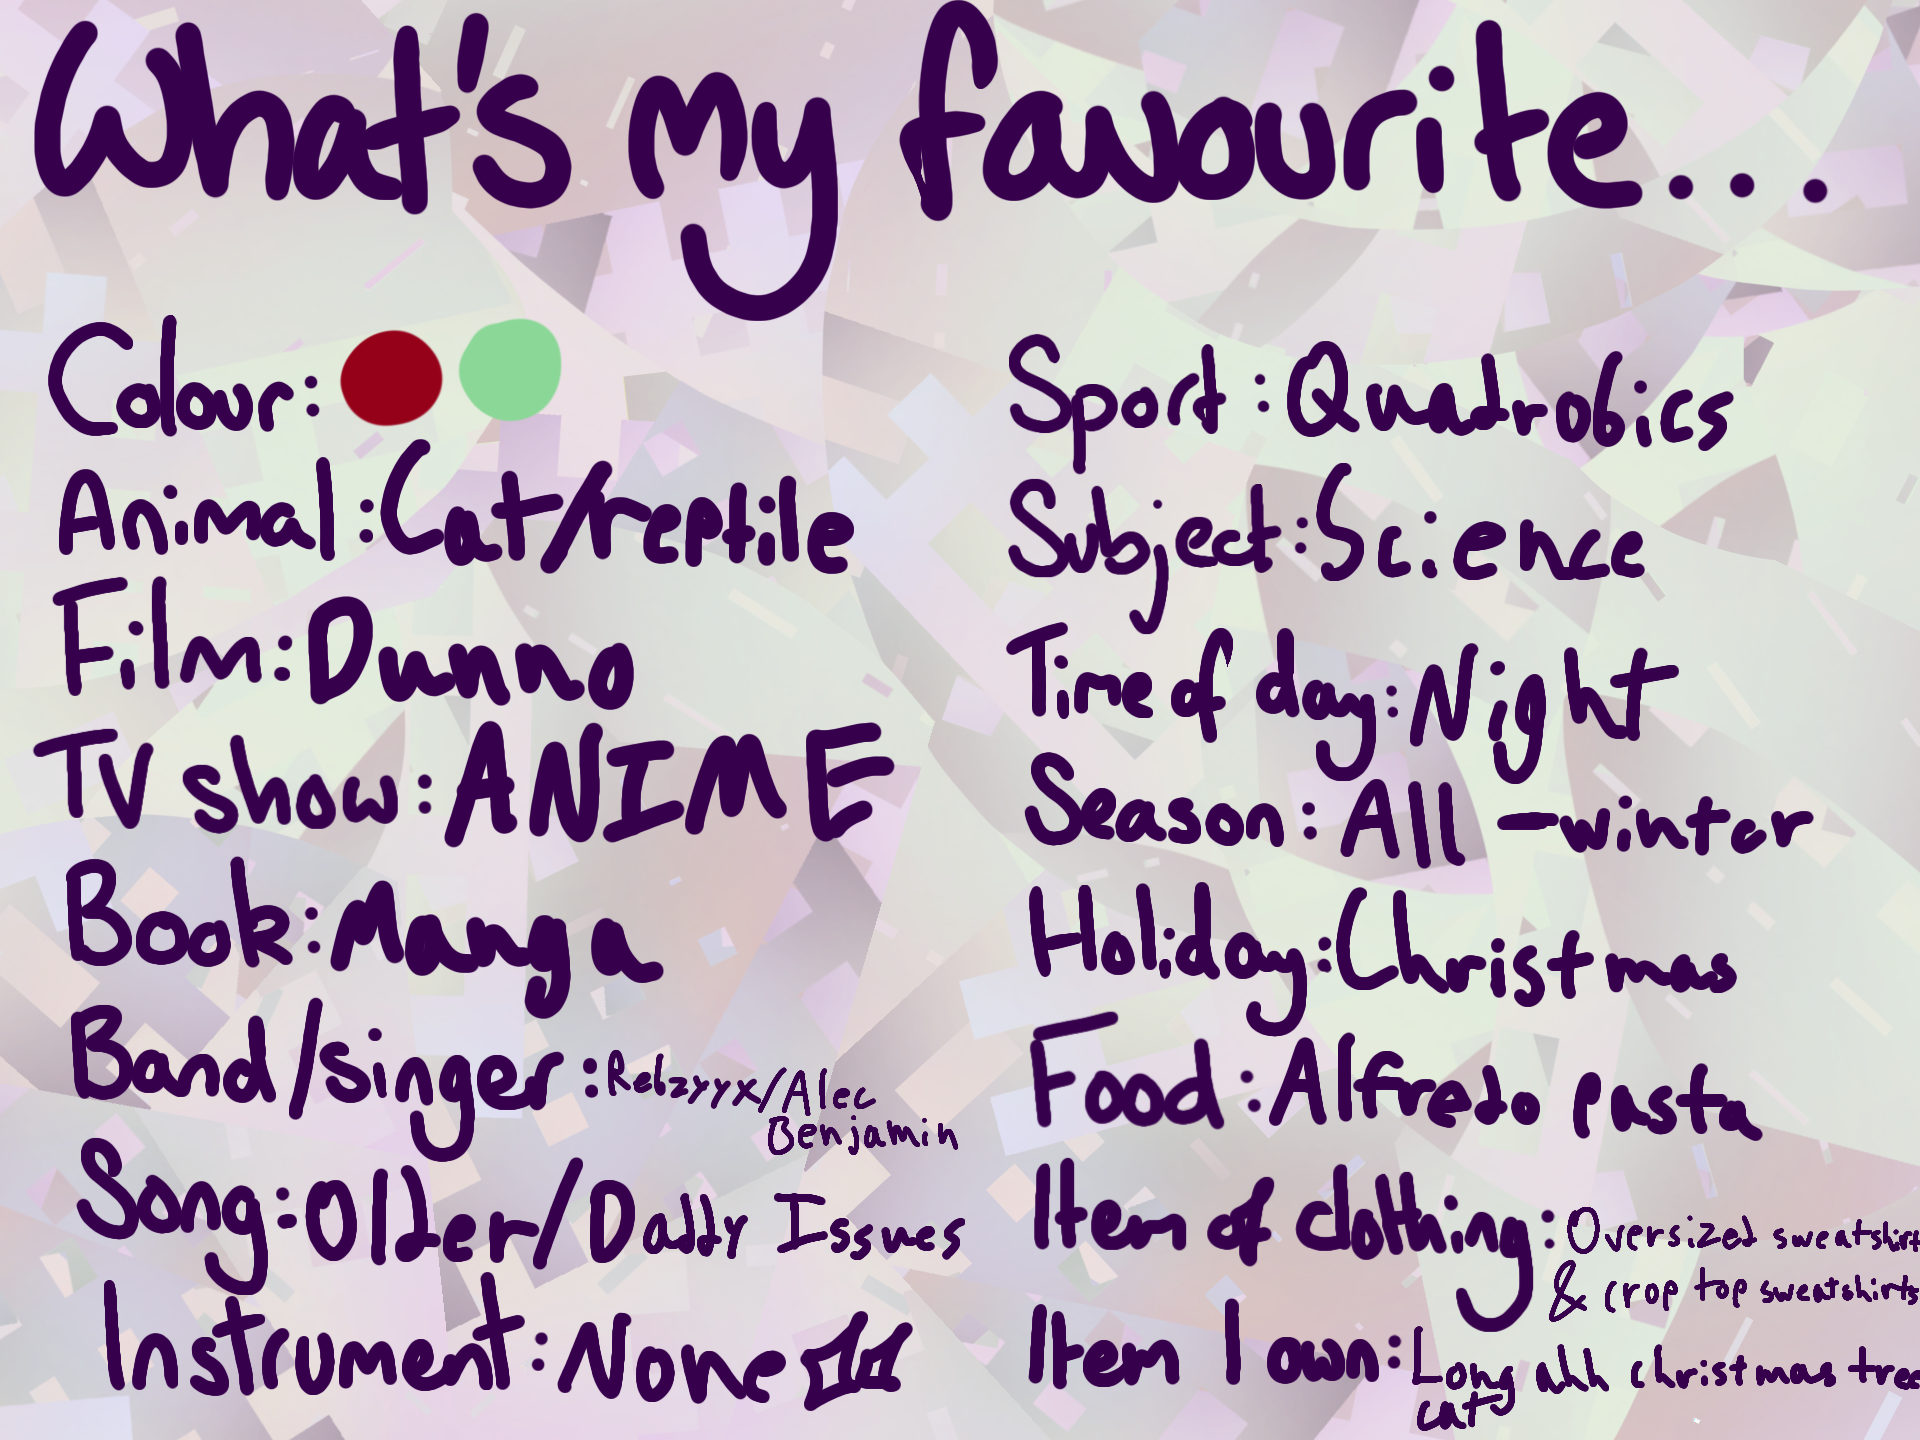 What's my favourite...
Colour:
Animal: Cat/reptile
Film: Dunno
TV show: ANIME
Book: Manga
Band/singer: Rebzyyx/Alec
Benjamin
Song: Older/Daddy Issues
Instrument: None
Sport: Quadrobics
Subject: Science
Time of day: Night
Season: All -winter
Holiday: Christmas
Food: Alfredo pasta
Item of clothing: Oversized sweatshirt
& crop top sweatshirts
Item I own: Long ahh christmas tree
cat